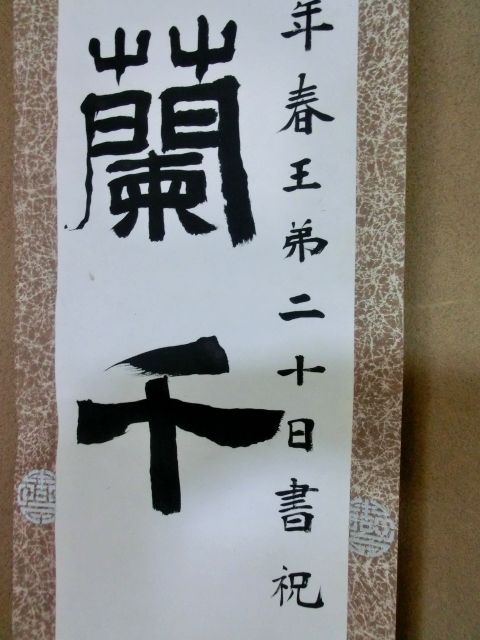 年春王弟二十日書祝
蘭千